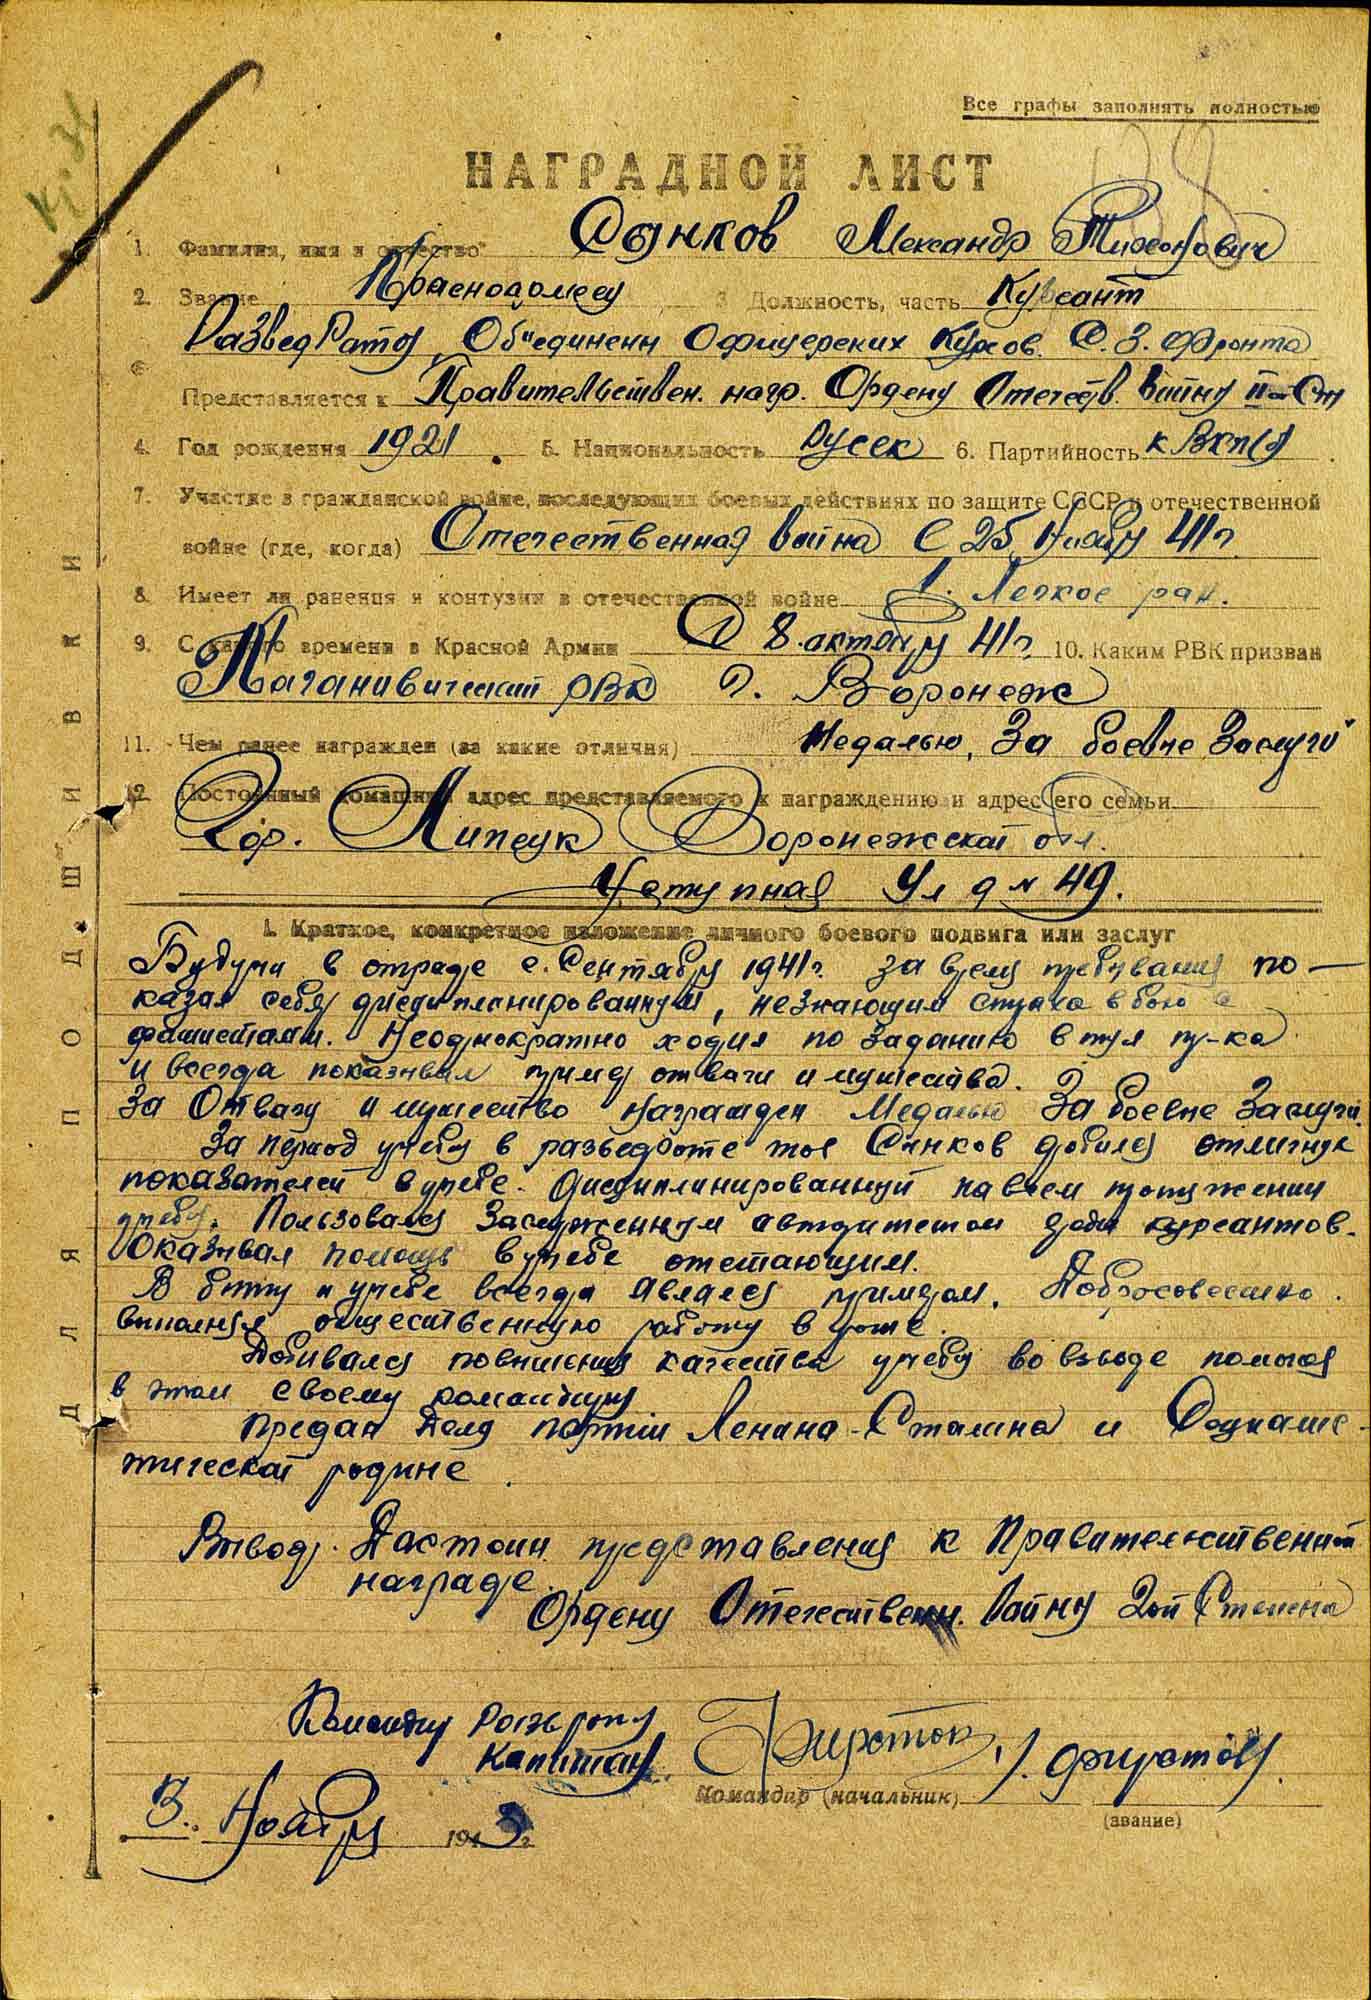 Все графы заполнять полностью
НАГРАДНОЙ ЛИСТ
1. Фамилия, имя и отчество Сынков Александр Тихонович
2. Звание Красноармеец 3. Должность, часть Курсант
РазведРоты Объединенн Офицерских Курсов С. З. Фронта
Представляется к Правительствен. нагр. Ордену Отечеств. Войны II-й Ст
4. Год рождения 1921. 5. Национальность Русск 6. Партийность к ВКП(б)
7. Участие в гражданской войне, последующих боевых действиях по защите СССР и отечественной
войне (где, когда) Отечественная война С 25 Ноября 41 г.
8. Имеет ли ранения и контузии в отечественной войне 1. Легкое ран.
9. С какого времени в Красной Армии С 8. октября 41 г. 10. Каким РВК призван
Кагановический РВК г. Воронеж
11. Чем ранее награжден (за какие отличия) Медалью „За боевые Заслуги"
12. Постоянный домашний адрес представляемого к награждению и адрес его семьи
Гор. Липецк Воронежской обл.
Уступная Ул д № 49.
I. Краткое, конкретное изложение личного боевого подвига или заслуг
Будучи в отряде с. Сентября 1941 г. за время пребывания по-
казал себя дисциплинированным, незнающим страха в бою с
фашистами. Неоднократно ходил по Заданию в тыл пр-ка
и всегда показывал пример отваги и мужества.
За Отвагу и мужество Награжден Медалью За боевые Заслуги.
За период учебы в разведроте тов Сынков добился отличных
показателей в учебе. Дисциплинированный на всем протяжении
учебы. Пользовался Заслуженным авторитетом среди курсантов.
Оказывал помощь в учебе отстающим.
В быту и учебе всегда Являлся примером. Добросовестно
выполнял общественную работу в роте.
Добивался повышения качества учебы во взводе помогая
в этом своему командиру
Предан Делу партии Ленина-Сталина и Социалис-
тической родине.
Вывод: Достоин представления к Правительственной
награде.
Ордену Отечественн. Войны 2ой Степени
Командир Разведроты
Капитан Фирстов /. Фирстов/.
Командир (начальник)
(звание)
3. Ноября 1943 г.
ДЛЯ ПОДШИВКИ